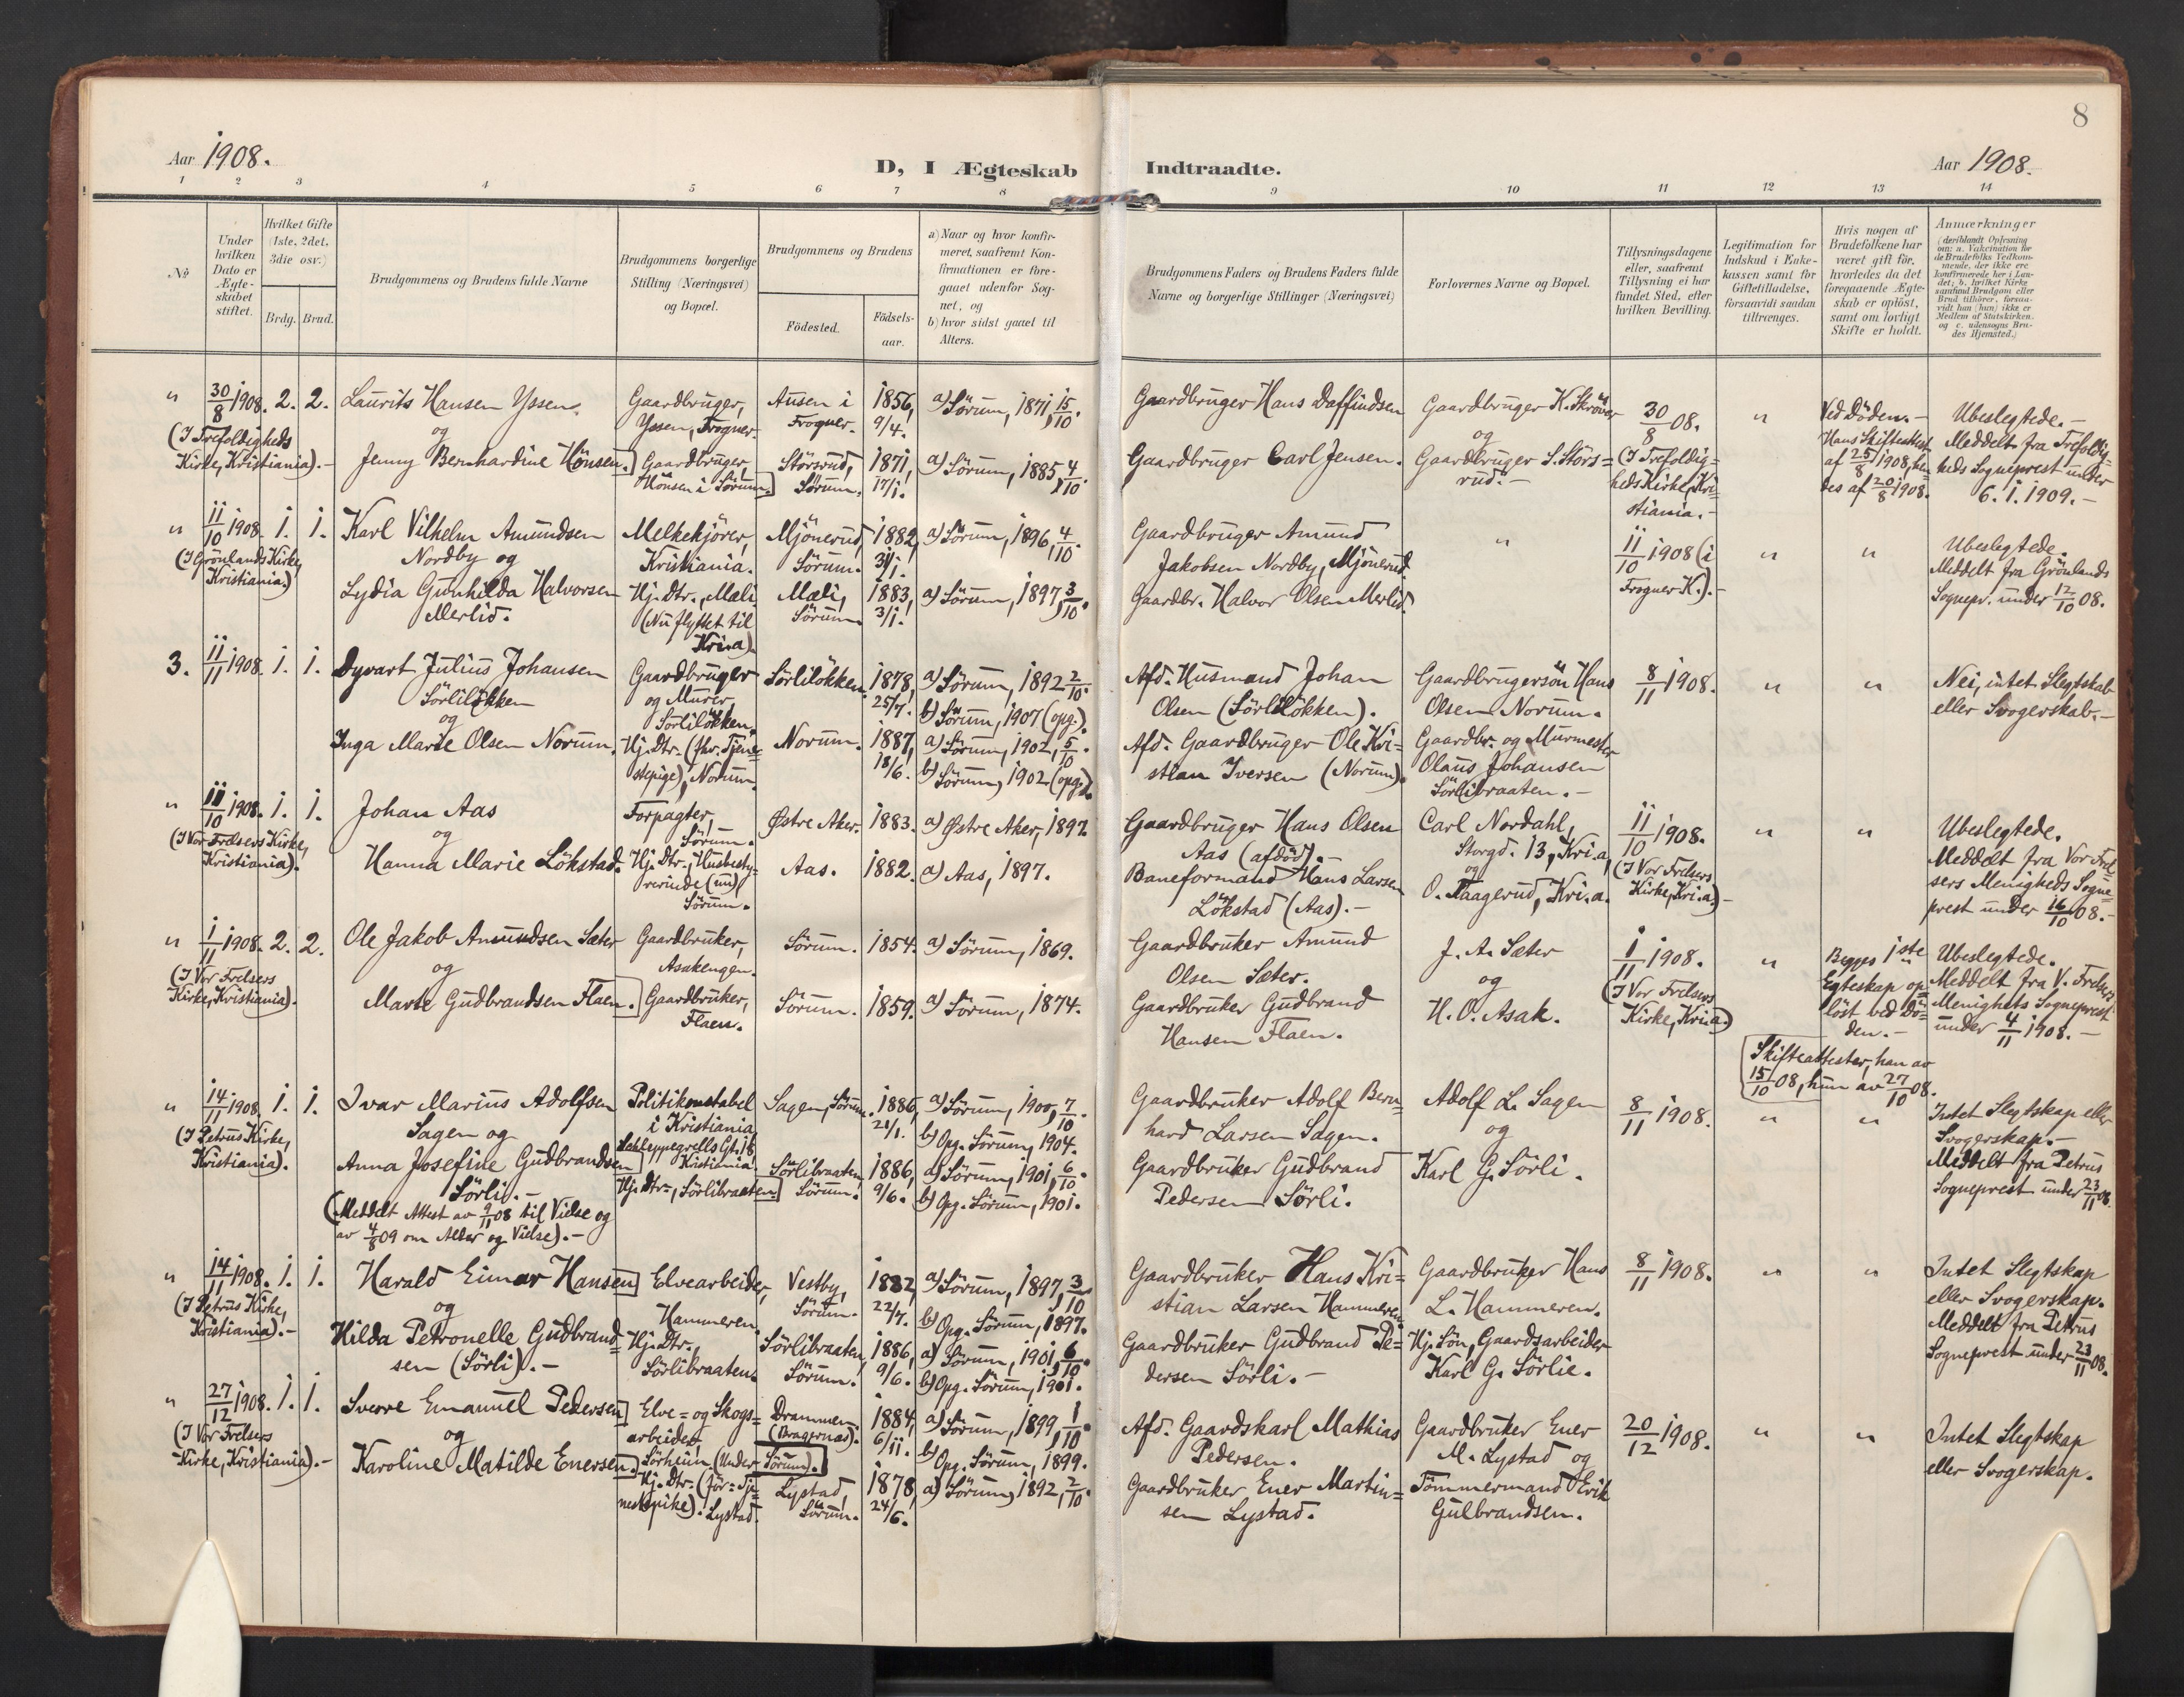 8
Aar 1908.
D, I Ægteskab Indtraadte.
Aar 1908.
1 2 3 4 5 6 7 8 9 10 11 12 13 14
No
Under hvilken Dato er Ægteskabet stiftet.
Hvilket Gifte (1ste, 2det, 3die osv.)
Brdg. Brud.
Brudgommens og Brudens fulde Navne
Brudgommens borgerlige Stilling (Næringsvei) og Bopæl.
Brudgommens og Brudens
Födested.
Födsels-aar.
a) Naar og hvor konfirmeret, saafremt Konfirmationen er foregaaet udenfor Sognet, og
b) hvor sidst gaaet til Alters.
Brudgommens Faders og Brudens Faders fulde Navne og borgerlige Stillinger (Næringsvei)
Forlovernes Navne og Bopæl.
Tillysningsdagene eller, saafremt Tillysning ei har fundet Sted, efter hvilken Bevilling.
Legitimation for Indskud i Enkekassen samt for Giftetilladelse, forsaavidt saadan tiltrænges.
Hvis nogen af Brudefolkene har været gift för, hvorledes da det foregaaende Ægteskab er oplöst, samt om lovligt Skifte er holdt.
Anmærkninger
(deriblandt Oplysning om: a. Vakcination for de Brudefolks Vedkommende, der ikke ere konfirmerede her i Landet; b. hvilket Kirkesamfund Brudgom eller Brud tilhörer, forsaavidt han (hun) ikke er Medlem af Statskirken, og c. udensogns Brudes Hjemsted.)
" 30/8 1908. 2. 2. Laurits Hansen Yssen
og
(I Trefoldigheds Kirke, Kristiania).-
Jenny Bernhardine Hönsen.
Gaardbruger, Yssen, Frogner.
Gaardbruger, Hönsen i Sörum.
Ausen i Frogner. 1856, 9/4. a) Sörum, 1871, 15/10.
Störsrud, Sörum. 1871, 17/1. a) Sörum, 1885, 4/10.
Gaardbruger Hans Daffindsen
Gaardbruger Carl Jensen.
Gaardbruger K. Skröver
og
Gaardbruger S. Störsrud.-
30/8 08. (I Trefoldigheds Kirke, Kristiania.-
"
Ved Döden.-
Hans Skifteattest af 25/8 1908, hendes af 20/8 1908.
Ubeslegtede.-
Meddelt fra Trefoldigheds Sogneprest under 6.1.1909.-
" 11/10 1908. 1. 1. Karl Vilhelm Amundsen Nordby og
(I Grönlands Kirke, Kristiania.)
Lydia Gunhilda Halvorsen Merlid.
Melkekjörer, Kristiania.
Hj. Dtr., Mæli (Nu flyttet til Kri.a).
Mjönerud, Sörum. 1882, 31/1. a) Sörum, 1896, 4/10.
Mæli, Sörum. 1883, 3/1. a) Sörum, 1897, 3/10.
Gaardbruger Amund Jakobsen Nordby, Mjönerud.
Gaardbr. Halvor Olsen Merlid.
"
11/10 1908 (i Frogner K.).-
" "
Ubeslegtede.
Meddelt fra Grönlands Sognepr. under 12/10 08.
3. 11/11 1908. 1. 1. Dyvart Julius Johansen Sörlilökken
og
Inga Marie Olsen Norum.
Gaardbruger og Murer, Sörlilökken.
Hj. Dtr. (fhv. Tjenestepige), Norum.
Sörlilökken. 1878, 25/7. a) Sörum, 1892 2/10.
b) Sörum, 1907 (opg.).
Norum. 1887, 18/6. a) Sörum, 1902, 5/10.
b) Sörum, 1902 (opg.).
Afd. Husmand Johan Olsen (Sörlilökken).
Afd. Gaardbruger Ole Kristian Iversen (Norum).
Gaardbrugersön Hans Olsen Norum.
Gaardbr. og Murmester Olaus Johansen Sörlibraaten.-
8/11 1908.
" "
Nei, intet Slegtskab eller Svogerskab.-
" 11/10 1908. 1. 1. Johan Aas
og
(I Vor Frelsers Kirke, Kristiania).
Hanna Marie Lökstad.
Forpagter, Sörum.
Hj. Dtr., Husbestyrerinde (nu) Sörum.
Østre Aker. 1883. a) Østre Aker, 1897
Aas. 1882. a) Aas, 1897.
Gaardbruger Hans Olsen Aas (afdöd).-
Baneformand Hans Larsen Lökstad (Aas).-
Carl Nordahl, Storgd. 13, Kri.a,
og
O. Haagerud, Kri.a.
11/10 1908. (I Vor Frelsers Kirke, Kri.a.)-
" "
Ubeslegtede.
Meddelt fra Vor Frelsers Menigheds Sogneprest under 16/10 08.-
" 1/11 1908. 2. 2. Ole Jakob Amundsen Sæter
og
(I Vor Frelsers Kirke, Kristiania).
Marie Gudbrandsen Flaen.
Gaardbruker, Asakengen.
Gaardbruker, Flaen.
Sörum. 1854. a) Sörum, 1869.
Sörum. 1859. a) Sörum, 1874.
Gaardbruker Amund Olsen Sæter.
Gaardbruker Gudbrand Hansen Flaen.
J. A. Sæter
og
H. O. Asak.
1/11 1908. (I Vor Frelsers Kirke, Kri.a)
"
Begges 1ste Egteskap oplöst ved Döden.-
Skifteattester, han av 15/10 08, hun av 27/10 08.
Ubeslegtede.
Meddelt fra V. Frelsers Menighets Sogneprest under 4/11 1908.-
" 14/11 1908. 1. 1. Ivar Marius Adolfsen Sagen og
(I Petrus Kirke, Kristiania).
Anna Josefine Gudbrandsen Sörli.-
(Meddelt Attest av 9/11 08 til Vielse og av 4/8 09 om Alder og Vielse).-
Politikonstabel i Kristiania, Schleppegrells Gt. 18 Kristiania.
Hj. Dtr., Sörlibraaten
Sagen, Sörum. 1886, 21/1. a) Sörum, 1900, 7/10
b) Opg. Sörum, 1904.
Sörlibraaten, Sörum. 1886, 9/6. a) Sörum, 1901, 6/10.
b) Opg. Sörum, 1901.
Gaardbruker Adolf Bernhard Larsen Sagen.
Gaardbruker Gudbrand Pedersen Sörli.
Adolf L. Sagen
og
Karl G. Sörli.
8/11 1908.
" "
Intet Slegtskap eller Svogerskap.-
Meddelt fra Petrus Sogneprest under 23/11 08.
" 14/11 1908. 1. 1. Harald Eimar Hansen
og
(I Petrus Kirke, Kristiania).-
Hilda Petronelle Gudbrandsen (Sörli).-
Elvearbeider, Hammeren.
Hj. Dtr., Sörlibraaten.
Vestby, Sörum. 1882, 22/7. a) Sörum, 1897, 3/10
b) Opg. Sörum, 1897.
Sörlibraaten, Sörum. 1886, 9/6. a) Sörum, 1901, 6/10.
b) Opg. Sörum, 1901.
Gaardbruker Hans Kristian Larsen Hammeren
Gaardbruker Gudbrand Pedersen Sörli.-
Gaardbruker Hans L. Hammeren.
Hj. Sön, Gaardsarbeider Karl G. Sörlie.
8/11 1908.
" "
Intet Slegtskap eller Svogerskap.
Meddelt fra Petrus Sogneprest under 23/11 08.
" 27/12 1908. 1. 1. Sverre Emanuel Pedersen
og
(I Vor Frelsers Kirke, Kristiania).-
Karoline Matilde Enersen
Elve= og Skogsarbeider, Sörheim (Under Sörum).
Hj. Dtr. (för: Tjenestepike). Lystad.
Drammen (Bragernæs). 1884, 6/11. a) Sörum, 1899 1/10.
b) Opg. Sörum, 1899.
Lystad, Sörum. 1878, 24/6. a) Sörum, 1892, 2/10.
Afd. Gaardskarl Mathias Pedersen.
Gaardbruker Ener Martinsen Lystad.
Gaardbruker Ener M. Lystad og
Tömmermand Erik Gulbrandsen.
20/12 1908.
" "
Intet Slegtskap eller Svogerskap.